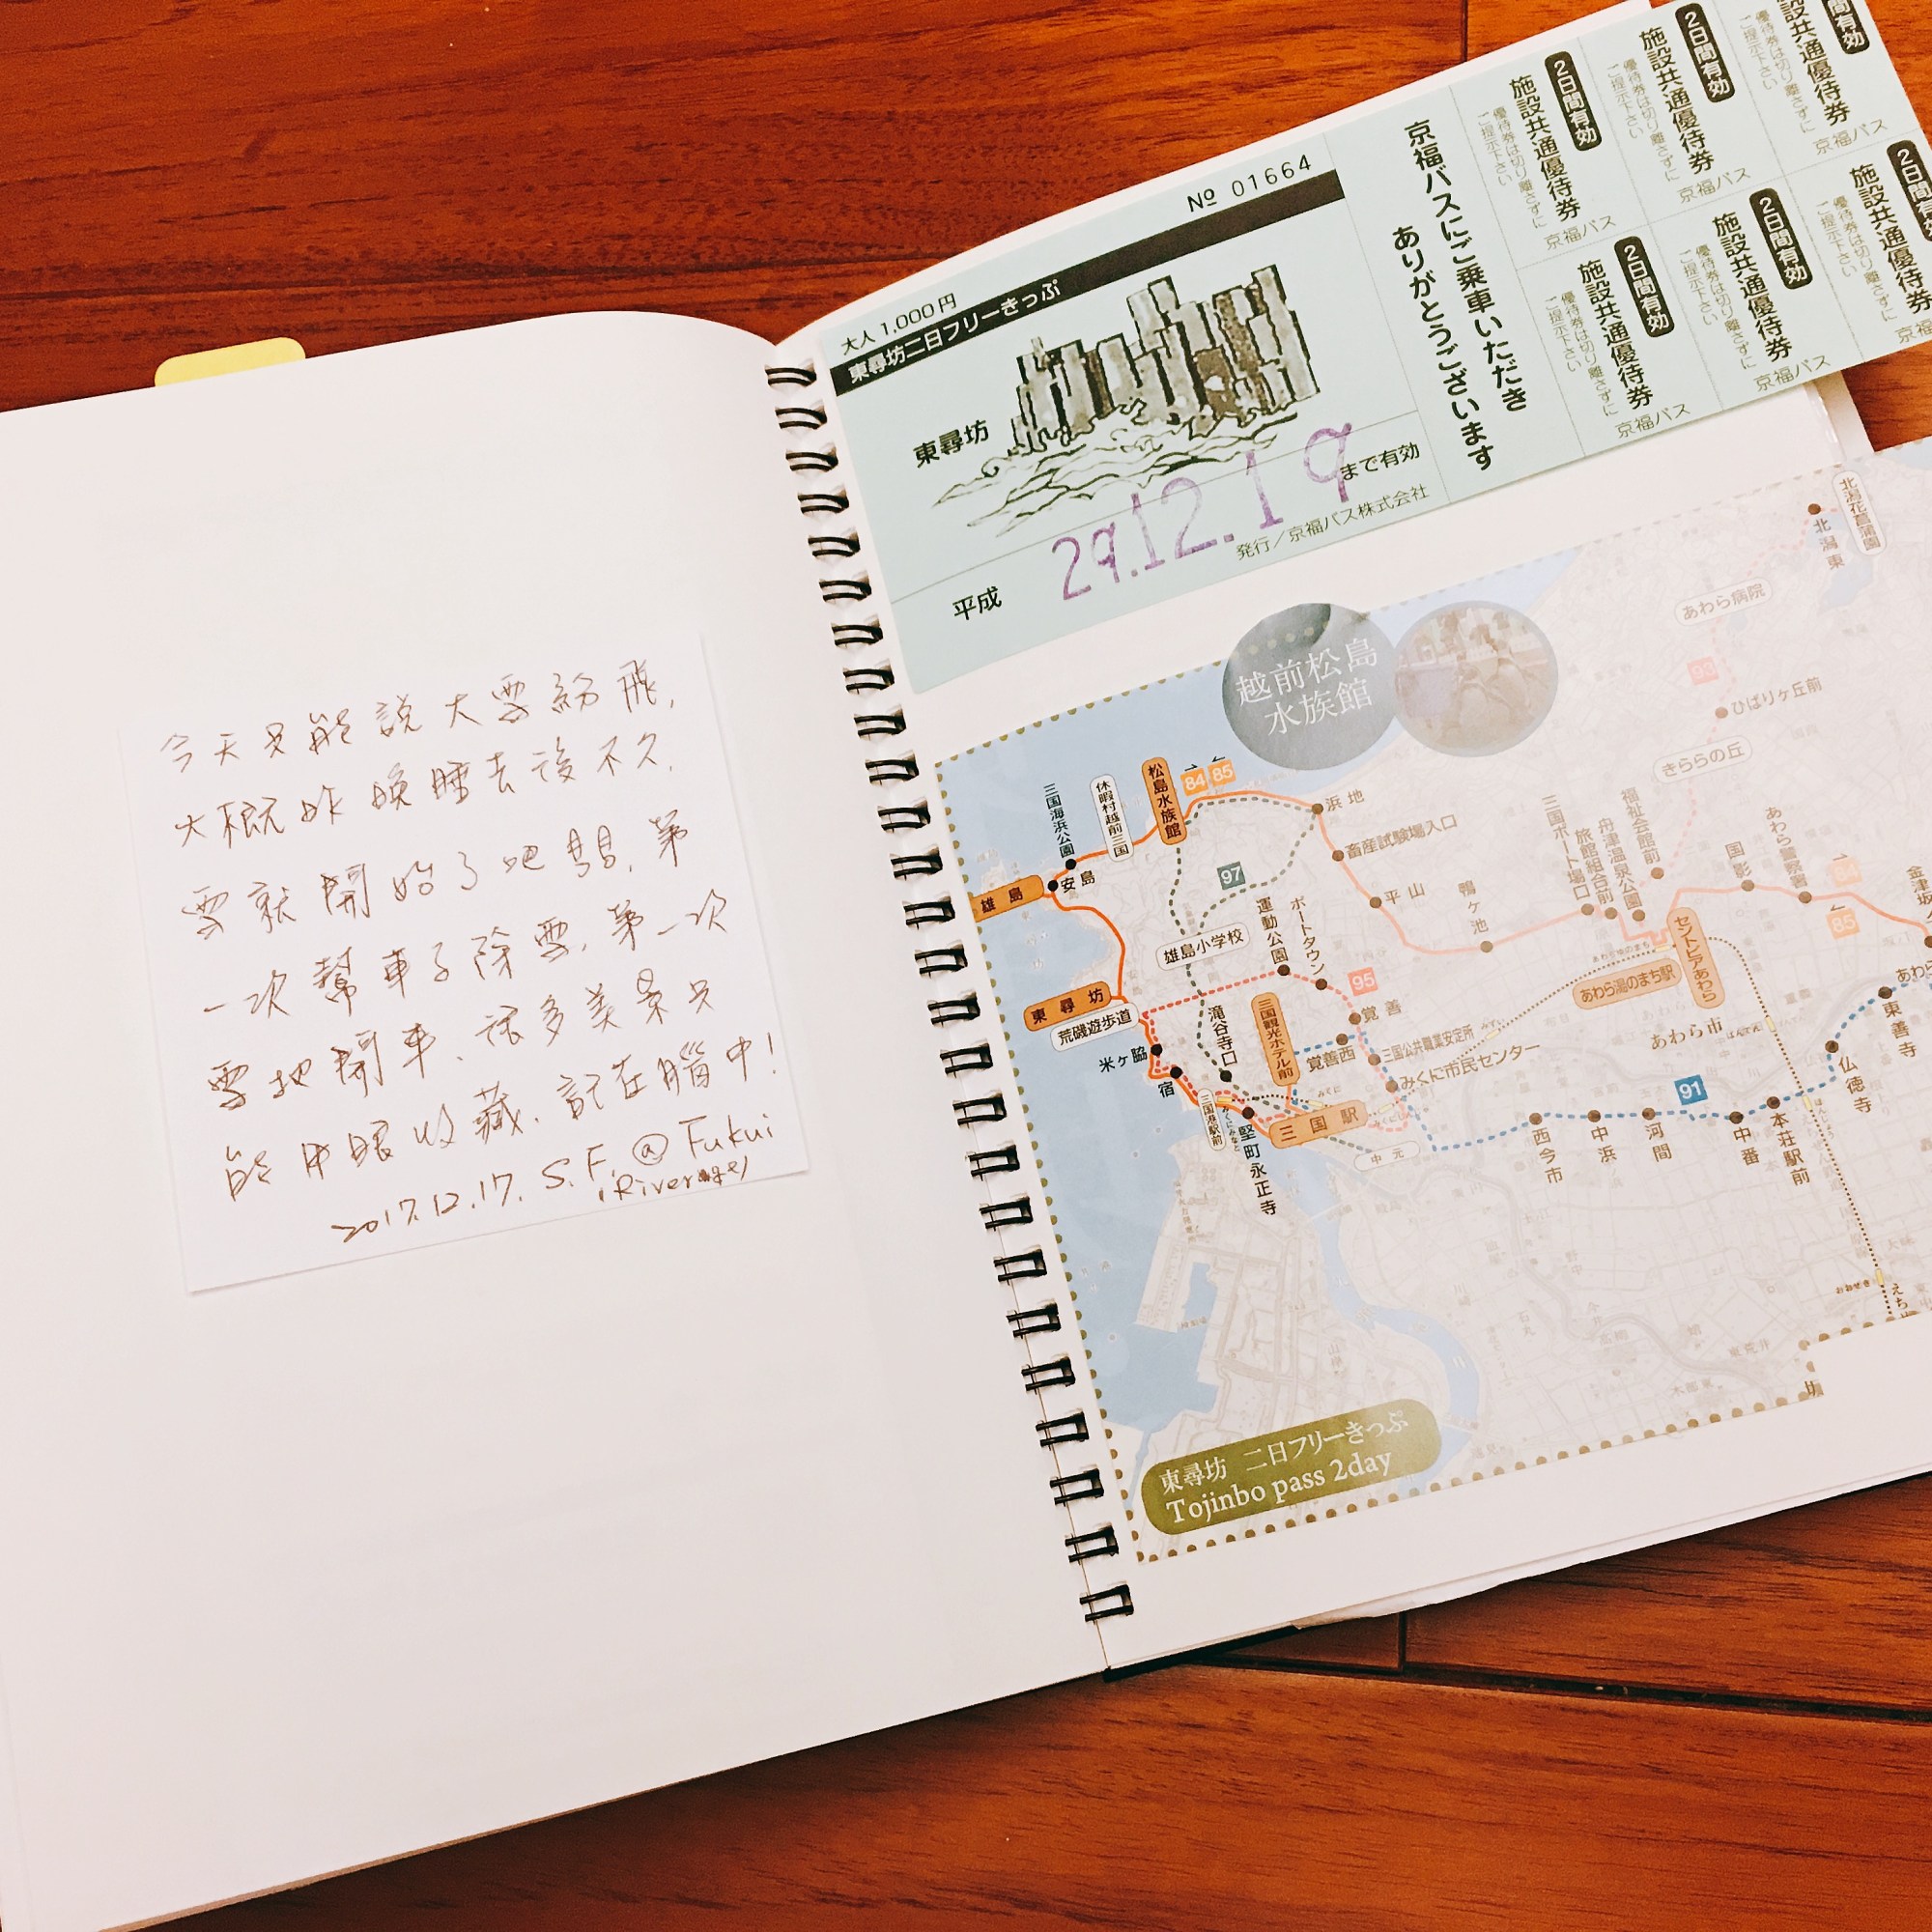 今天只能說大雪紛飛,
大概昨晚睡去後不久,
雪就開始了吧
一次幫車子除雪,第一次
雪地開車、許多美景只
能用眼收藏,記在腦中!
2017.12.17. S.F. @ Fukui
№ 01664
大人 1,000円
東尋坊二日フリーきっぷ
東尋坊
平成
29.12.19
まで有効
発行/京福バス株式会社
京福バスにご乗車いただき
ありがとうございます
2日間有効
施設共通優待券
優待券は切り離さずに
ご提示下さい
京福バス
2日間有効
施設共通優待券
優待券は切り離さずに
ご提示下さい
京福バス
施設共通優待券
優待券は切り離さずに
ご提示下さい
京福バス
2日間有効
施設共通優待券
優待券は切り離さずに
ご提示下さい
京福バス
2日間有効
施設共通優待券
優待券は切り離さずに
ご提示下さい
京福バス
施設共通優待券
優待券は切り離さずに
ご提示下さい
越前松島
水族館
北潟花菖蒲園
北潟東
あわら病院
93
ひばりヶ丘前
きららの丘
三国海浜公園
休暇村越前三国
松島水族館
84
85
浜地
畜産試験場入口
平山
鴨ヶ池
三国ボート場口
旅館組合前
舟津温泉公園
福祉会館前
国影
あわら警察署
84
85
雄島
安島
97
雄島小学校
運動公園
ボートタウン
95
覚善
覚善西
三国公共職業安定所
みくに市民センター
セントピアあわら
あわら湯のまち駅
あわら市
東尋坊
荒磯遊歩道
米ヶ脇
宿
滝谷寺口
三国観光ホテル前
三国港駅前
三国駅
堅町永正寺
中元
91
西今市
中浜
河間
中番
本荘駅前
仏徳寺
東善寺
東尋坊 二日フリーきっぷ
Tojinbo pass 2day